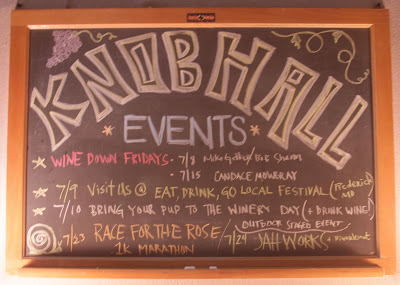 KNOB HALL
EVENTS
WINE DOWN FRIDAYS - 7/8 Mike / Bob Sharon
7/15 CANDACE MOWERAY
7/9 VISIT US @ EAT, DRINK, GO LOCAL FESTIVAL (Frederick MD)
7/10 BRING YOUR PUP TO THE WINERY DAY (+ DRINK WINE)
OUTDOOR STAGED EVENT
7/23 RACE FOR THE ROSE / 7/24 JAH WORKS +
1K MARATHON